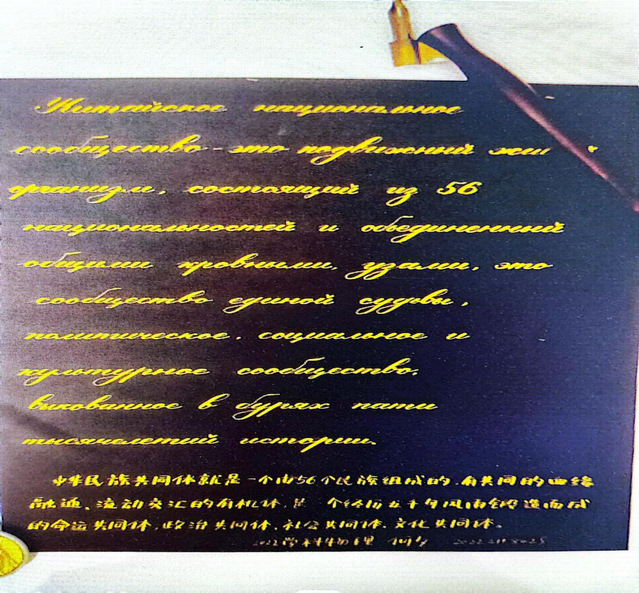 Китайское национальное
сообщество - это подвижный жи
организм, состоящий из 56
национальностей и объединенный
общими кровными, узами, это
сообщество единой судьбы,
политическое, социальное и
культурное сообщество,
выкованное в бурях пяти
тысячелетий истории.
中华民族共同体就是一个由56个民族组成的、有共同的血缘
融通、流动交汇的有机体，是一个经历五千年风雨锻造而成
的命运共同体、政治共同体、社会共同体、文化共同体。
2022